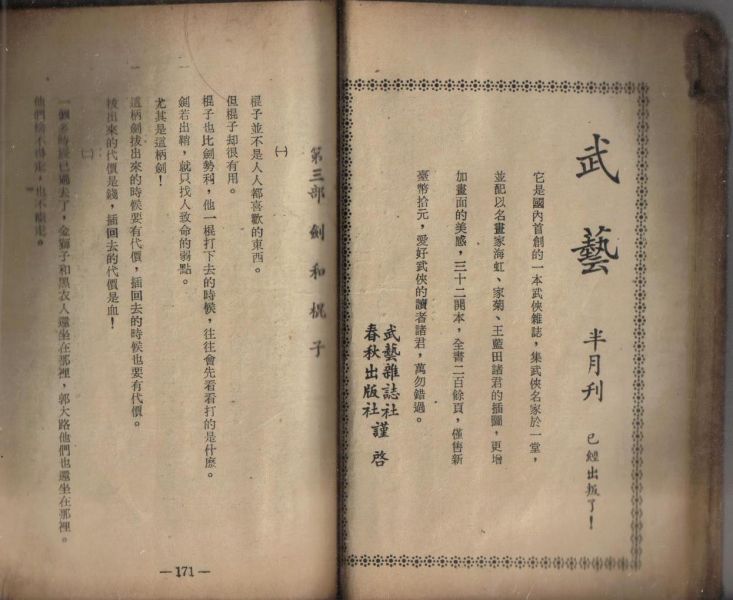 武藝 半月刊 已經出版了！
它是國內首創的一本武俠雜誌，集武俠名家於一堂，
並配以名畫家海虹、家菊、王藍田諸君的插圖，更增
加畫面的美感，三十二開本，全書二百餘頁，僅售新
臺幣拾元，愛好武俠的讀者諸君，萬勿錯過。
武藝雜誌社
春秋出版社 謹啓
第三部 劍和棍子
㈠
棍子並不是人人都喜歡的東西。
但棍子却很有用。
棍子也比劍勢利，他一棍打下去的時候，往往會先看看打的是什麼。
劍若出鞘，就只找人致命的弱點。
尤其是這柄劍！
這柄劍拔出來的時候要有代價，插回去的時候也要有代價。
拔出來的代價是錢，插回去的代價是血！
㈡
一個多時辰已過去了，金獅子和黑衣人還坐在那裡，郭大路他們也還坐在那裡。
他們捨不得走，也不願走。
—171—